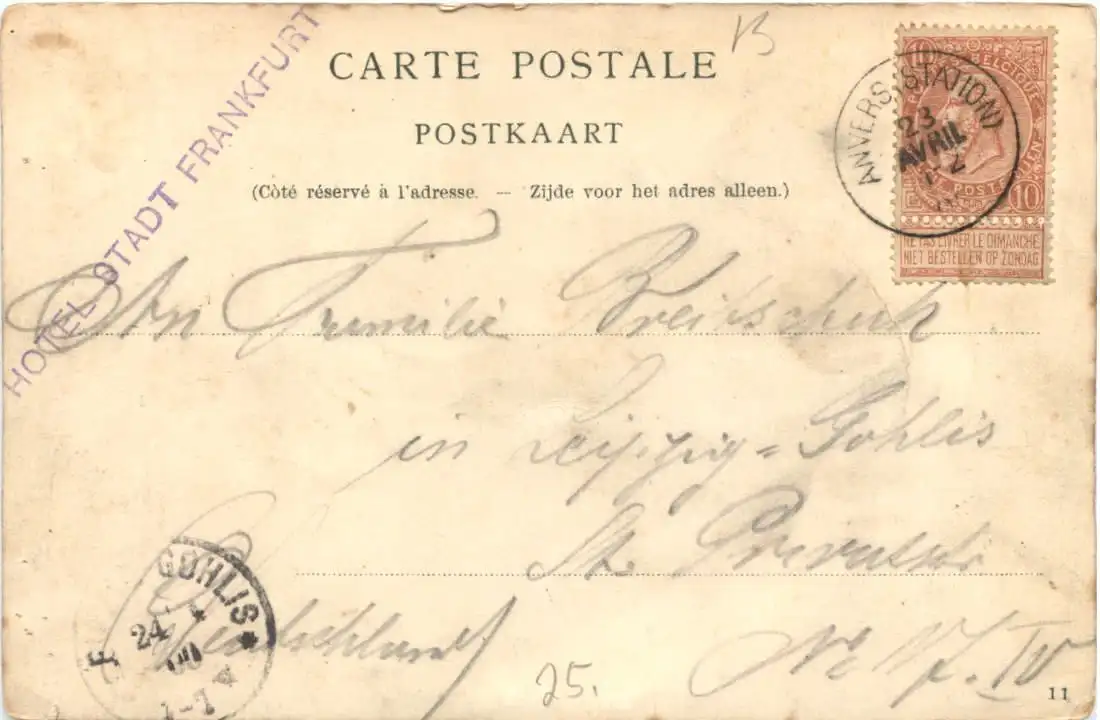 B
CARTE POSTALE
POSTKAART
(Côté réservé à l'adresse. — Zijde voor het adres alleen.)
HOTEL STADT FRANKFURT
BELGIQUE
10
POSTE
10
NE PAS LIVRER LE DIMANCHE
NIET BESTELLEN OP ZONDAG
ANVERS (STATION)
23
AVRIL
An Familie Breitschuh
in Leipzig=Gohlis
St.
Deutschland
IV
GOHLIS
24
00
25.
11